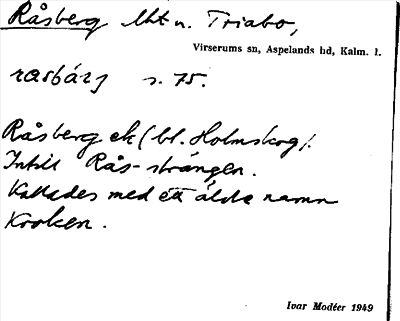 Råsberg lht u. Triabo,
Virserums sn, Aspelands hd, Kalm. l.
s. 75.
Råsberg ek (bl. Holmskog).
Intill Rås-strängen.
Kallades med ett äldre namn
Kroken.
Ivar Modéer 1949